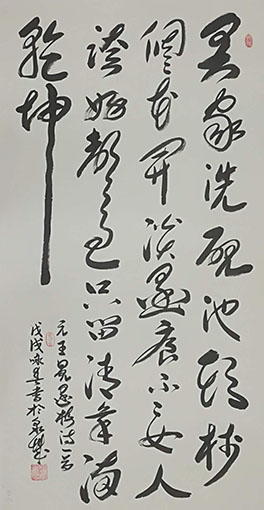 吳家洗硯池頭樹
個個花開淡墨痕不要人
誇好顏色只留清氣滿
乾坤
元王冕墨梅詩一首
戊戌 書於泉城